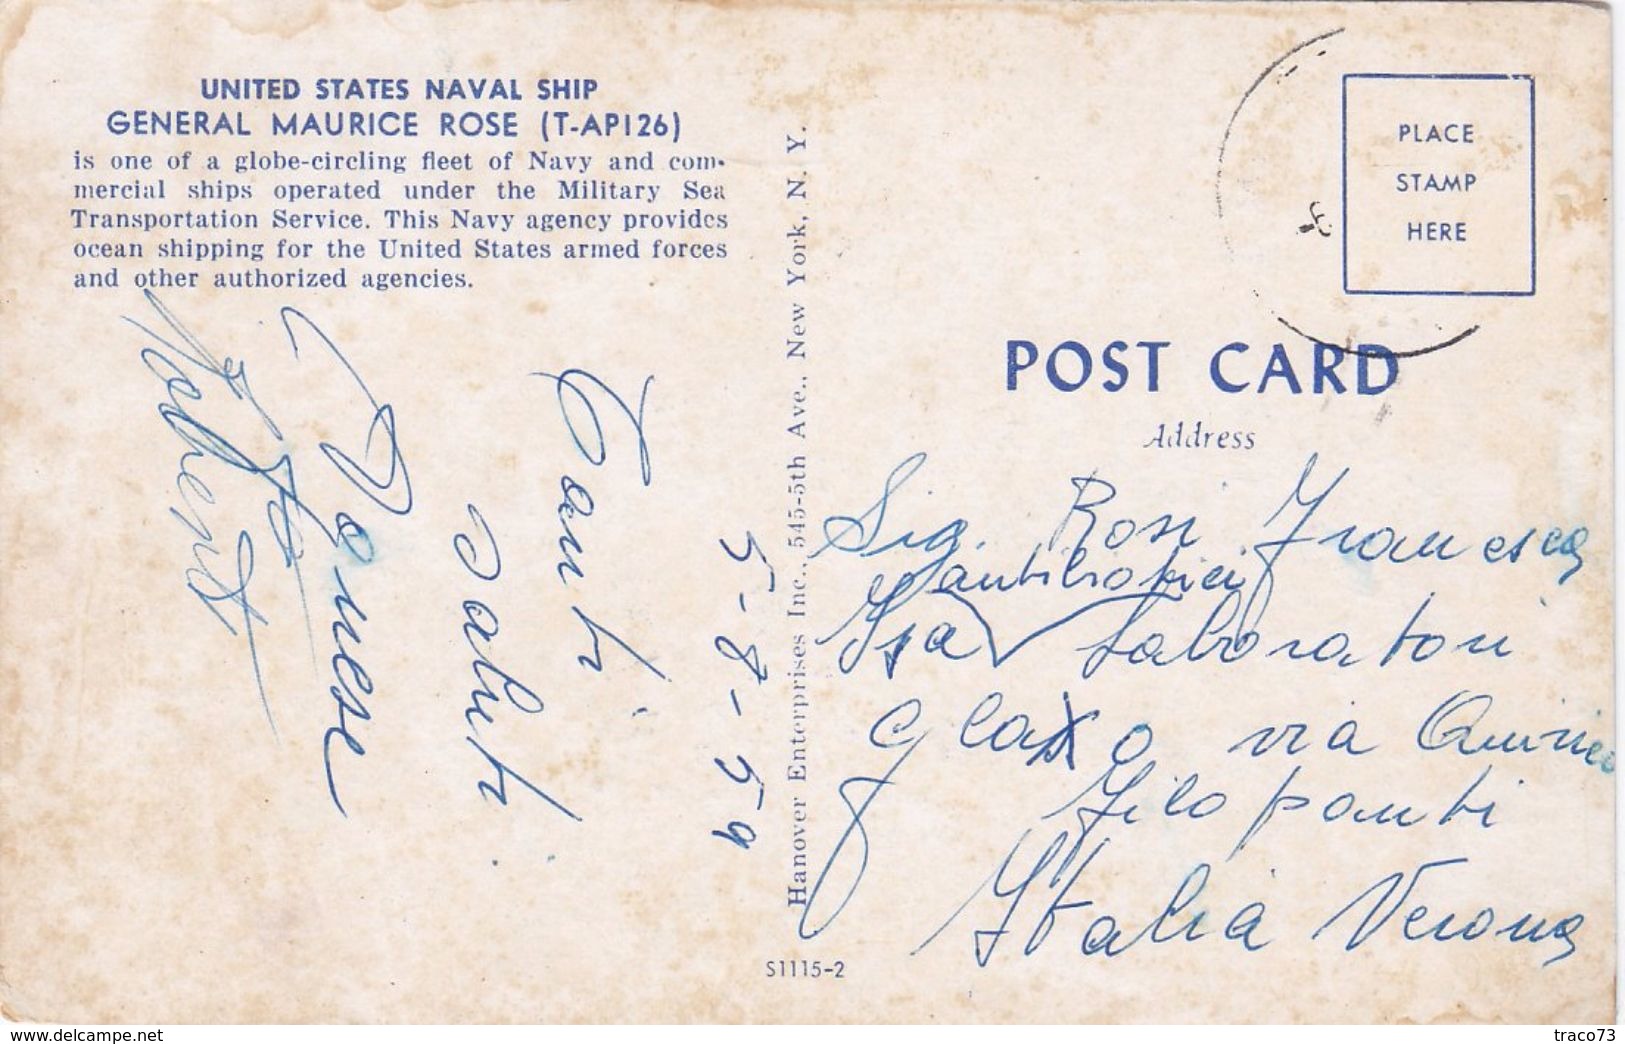 UNITED STATES NAVAL SHIP
GENERAL MAURICE ROSE (T-AP126)
is one of a globe-circling fleet of Navy and com-
mercial ships operated under the Military Sea
Transportation Service. This Navy agency provides
ocean shipping for the United States armed forces
and other authorized agencies.
5-8-59
Tanti
saluti
Hanover Enterprises Inc., 545-5th Ave., New York, N. Y.
S1115-2
PLACE
STAMP
HERE
POST CARD
Address
Sig. Rosi Francesca
antibiotici
Laboratori
Glaxo via
Filopanti
Italia Verona
delcampe.net
traco73